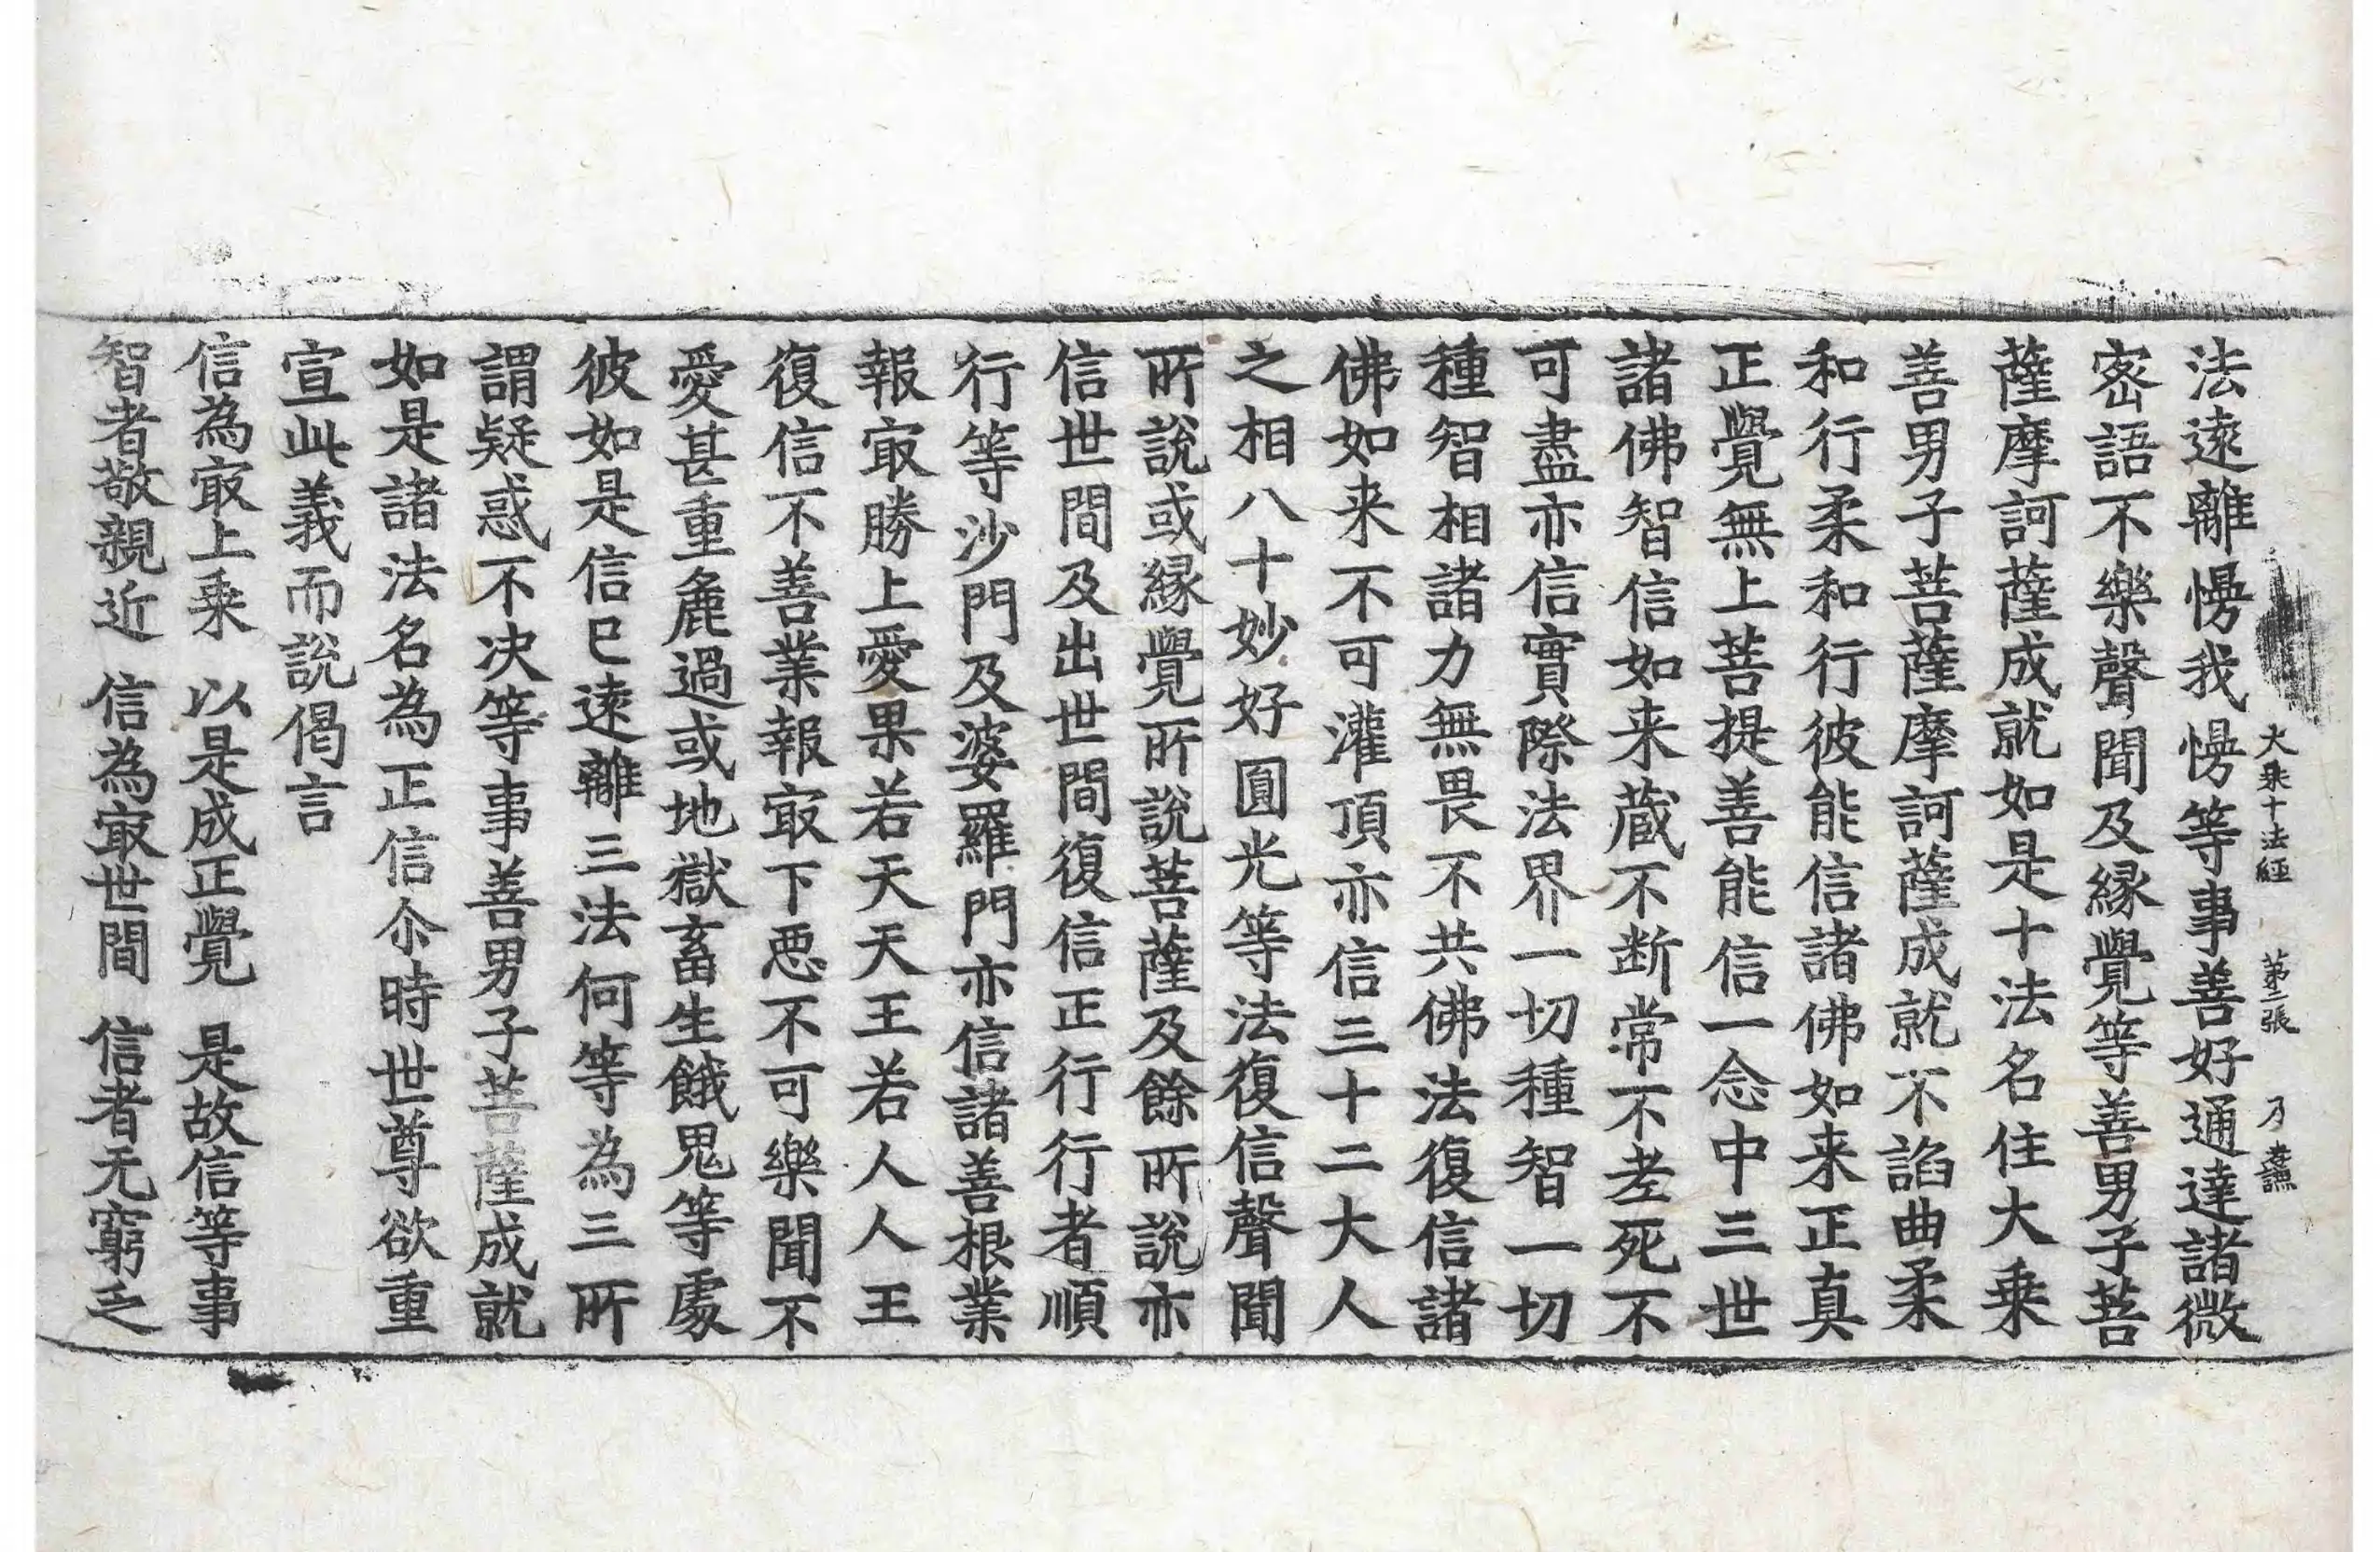 大乘十法經 第二張 乃
法遠離慢我慢等事善好通達諸微
密語不樂聲聞及縁覺等善男子菩
薩摩訶薩成就如是十法名住大乗
善男子菩薩摩訶薩成就不諂曲柔
和行柔和行彼能信諸佛如来正真
正覺無上菩提善能信一念中三世
諸佛智信如来蔵不断常不老死不
可盡亦信實際法界一切種智一切
種智相諸力無畏不共佛法復信諸
佛如来不可灌頂亦信三十二大人
之相八十妙好圓光等法復信聲聞
所說或縁覺所說菩薩及餘所說亦
信世間及出世間復信正行行者順
行等沙門及婆羅門亦信諸善根業
報㝡勝上愛果若天天王若人人王
復信不善業報㝡下惡不可樂聞不
愛甚重麁過或地獄畜生餓鬼等處
彼如是信已遠離三法何等為三所
謂疑惑不决等事善男子菩薩成就
如是諸法名為正信尒時世尊欲重
宣此義而說偈言
信為㝡上乗 以是成正覺 是故信等事
智者敬親近 信為㝡世間 信者无窮乏